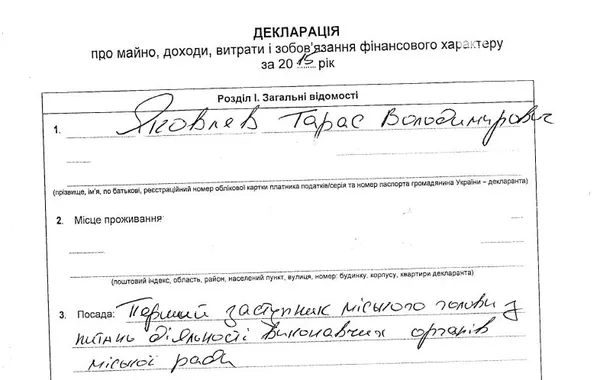 ДЕКЛАРАЦІЯ
про майно, доходи, витрати і зобов'язання фінансового характеру
за 2015 рік
Розділ І. Загальні відомості
1. Яковлев Тарас Володимирович
(прізвище, ім'я, по батькові, реєстраційний номер облікової картки платника податків/серія та номер паспорта громадянина України – декларанта)
2. Місце проживання
(поштовий індекс, область, район, населений пункт, вулиця, номер: будинку, корпусу, квартири декларанта)
3. Посада: Перший заступник міського голови з
питань діяльності виконавчих органів
міської ради